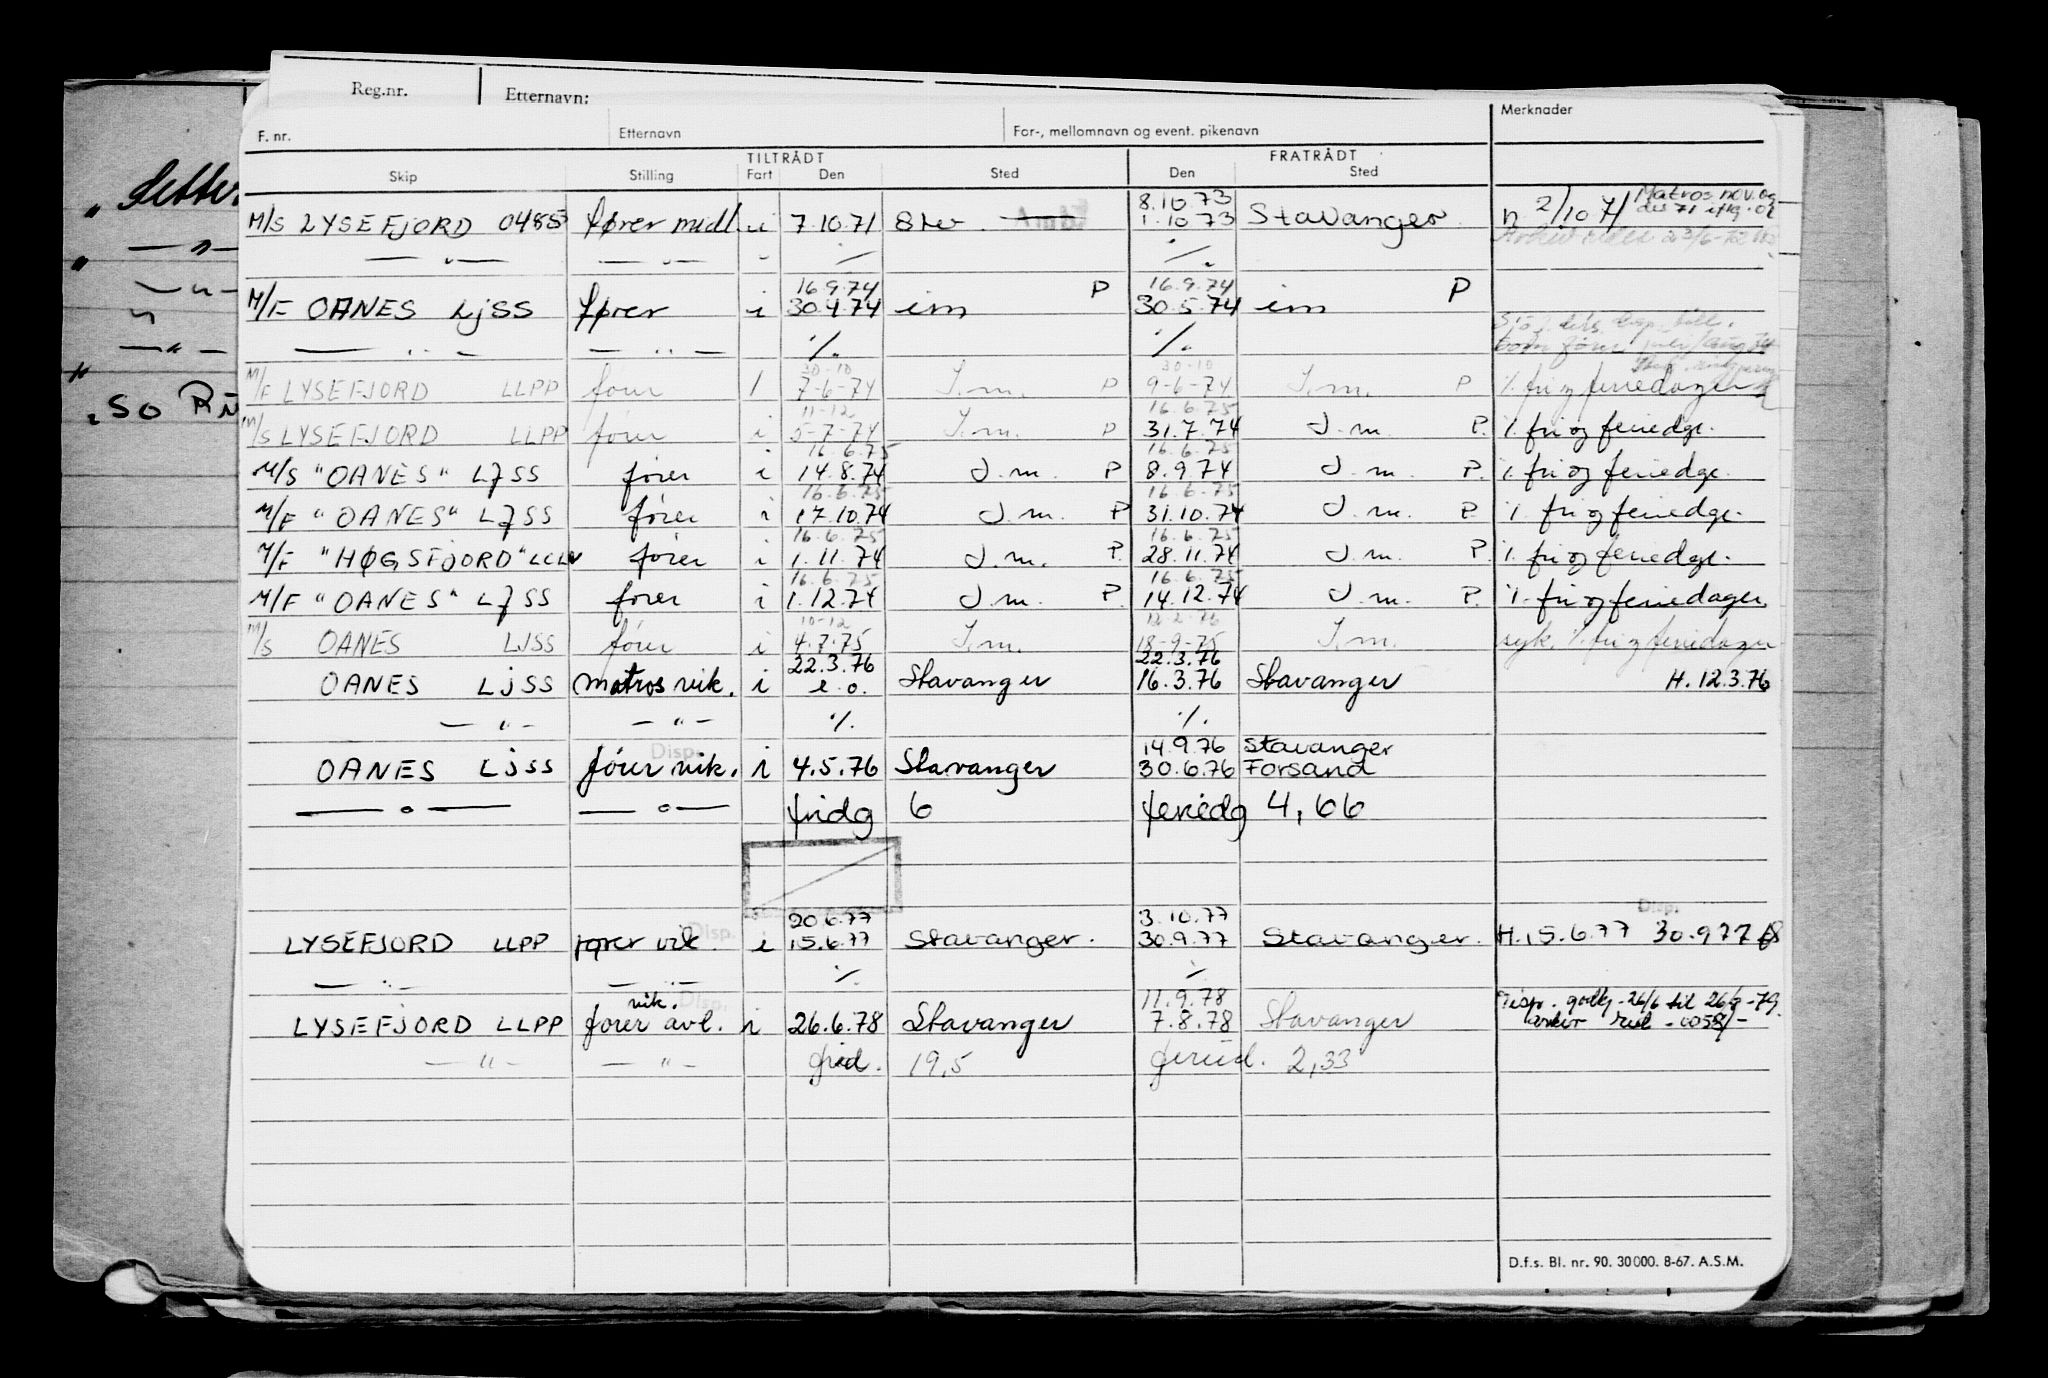 Reg.nr. Etternavn:
F. nr. Etternavn For-, mellomnavn og event. pikenavn Merknader
TILTRÅDT FRATRÅDT
Skip Stilling Fart Den Sted Den Sted
8.10.73 Matros nov. og
M/S LYSEFJORD fører midl. i 7.10.71 Stv 1.10 73 Stavanger n 2/10 71 des 71
— " — — " — " ./. ./.
16.9.74 16.9.74
M/F OANES LJSS fører i 30.4.74 im P 30.5.74 im P
— " — — " — ./. ./.
30-10 30-10
M/F LYSEFJORD LLPP fører I 7-6-74 I.m. P 9-6-74 I.m. P ./. fri og feriedager
11-12 16.6.75
M/S LYSEFJORD LLPP fører i 5-7-74 I.m. P 31.7.74 I.m. P. ./. fri og feriedgr.
16.6.75 16.6.75
M/S "OANES" LJSS fører i 14.8.74 I.m. P 8.9.74 I.m. P. ./. fri og feriedgr.
16.6.75 16.6.75
M/F "OANES" LJSS fører i 17.10.74 I.m. P 31.10.74 I.m. P ./. fri og feriedgr.
16.6.75 16.6.75
M/F "HØGSFJORD" fører i 1.11.74 I.m. P. 28.11.74 I.m. P. ./. fri og feriedgr.
16.6.75 16.6.75
M/F "OANES" LJSS fører i 1.12.74 I.m. P. 14.12.74 I.m. P. ./. fri og feriedager
10-12 12.2.76
M/S OANES LJSS fører i 4.7.75 I.m. 18-9-75 I.m. syk. ./. fri og feriedager
22.3.76 22.3.76
OANES LJSS matros vik. i e.o. Stavanger 16.3.76 Stavanger H. 12.3.76
— " — — " — ./. ./.
Disp. 14.9.76 Stavanger
OANES LJSS fører vik. i 4.5.76 Stavanger 30.6.76 Forsand
— " — — " — fridg 6 feriedg 4,66
20.6.77 3.10.77 Disp.
LYSEFJORD LLPP fører vik. Disp. i 15.6.77 Stavanger. 30.9.77 Stavanger. H.15.6.77 30.9.77
— " — — " — ./. ./.
vik. Disp. 11.9.78 Disp. godkj. 26/6 til
LYSEFJORD LLPP fører avl. i 26.6.78 Stavanger 7.8.78 Stavanger
— " — — " — frid. 19,5 feried. 2,33
D.f.s. Bl. nr. 90. 30000. 8-67. A.S.M.